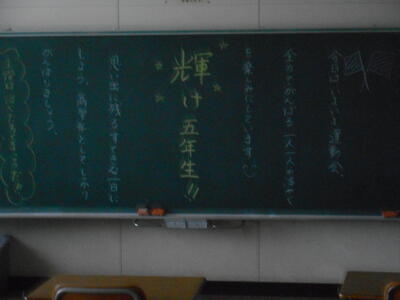 今日はいよいよ運動会。
全力でがんばる一人一人のすがた
を楽しみにしています
輝け五年生!!
思い出に残るすてきな一日に
しましょう。高学年としてしっかり
がんばりましょう。